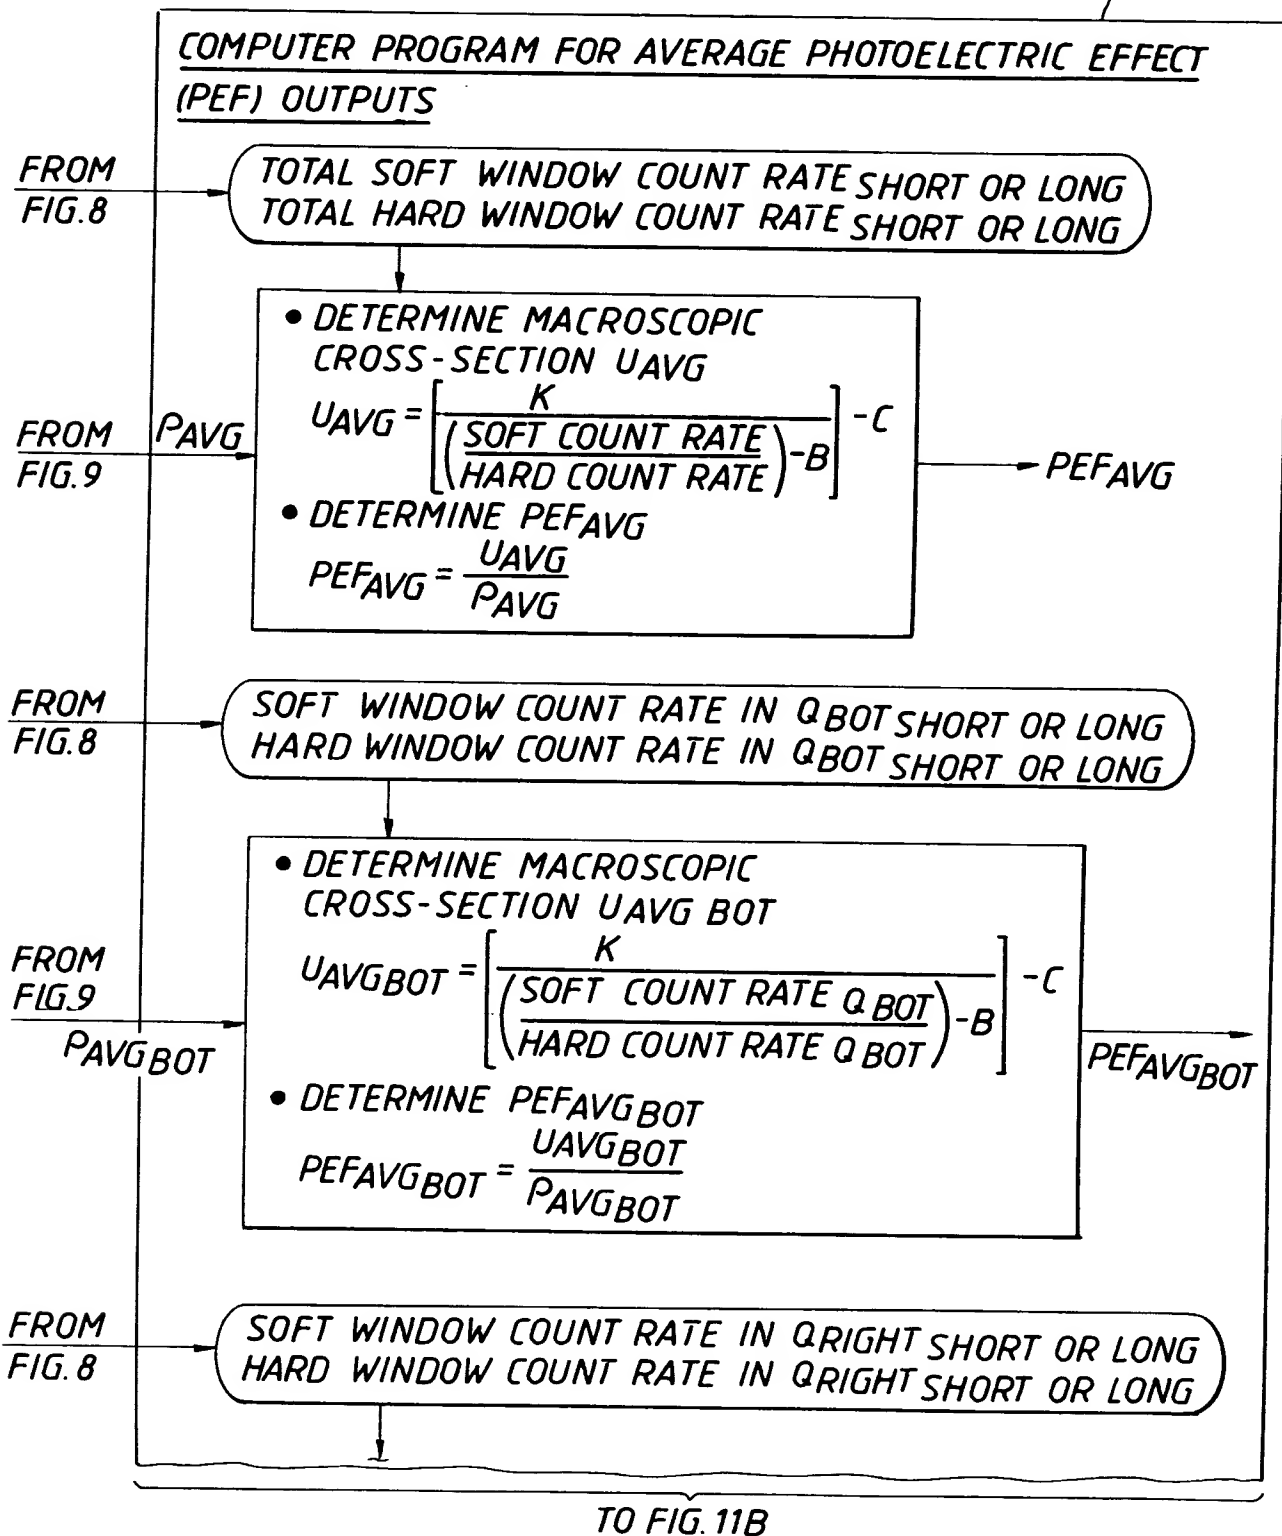 COMPUTER PROGRAM FOR AVERAGE PHOTOELECTRIC EFFECT
(PEF) OUTPUTS
FROM
FIG.8
TOTAL SOFT WINDOW COUNT RATE SHORT OR LONG
TOTAL HARD WINDOW COUNT RATE SHORT OR LONG
• DETERMINE MACROSCOPIC
CROSS-SECTION UAVG
UAVG = [K / ((SOFT COUNT RATE / HARD COUNT RATE) -B)] -C
FROM
FIG.9
ρAVG
• DETERMINE PEFAVG
PEFAVG = UAVG / ρAVG
PEFAVG
FROM
FIG.8
SOFT WINDOW COUNT RATE IN QBOT SHORT OR LONG
HARD WINDOW COUNT RATE IN QBOT SHORT OR LONG
• DETERMINE MACROSCOPIC
CROSS-SECTION UAVG BOT
UAVGBOT = [K / ((SOFT COUNT RATE QBOT / HARD COUNT RATE QBOT) -B)] -C
FROM
FIG.9
ρAVGBOT
• DETERMINE PEFAVGBOT
PEFAVGBOT = UAVGBOT / ρAVGBOT
PEFAVGBOT
FROM
FIG.8
SOFT WINDOW COUNT RATE IN QRIGHT SHORT OR LONG
HARD WINDOW COUNT RATE IN QRIGHT SHORT OR LONG
TO FIG.11B